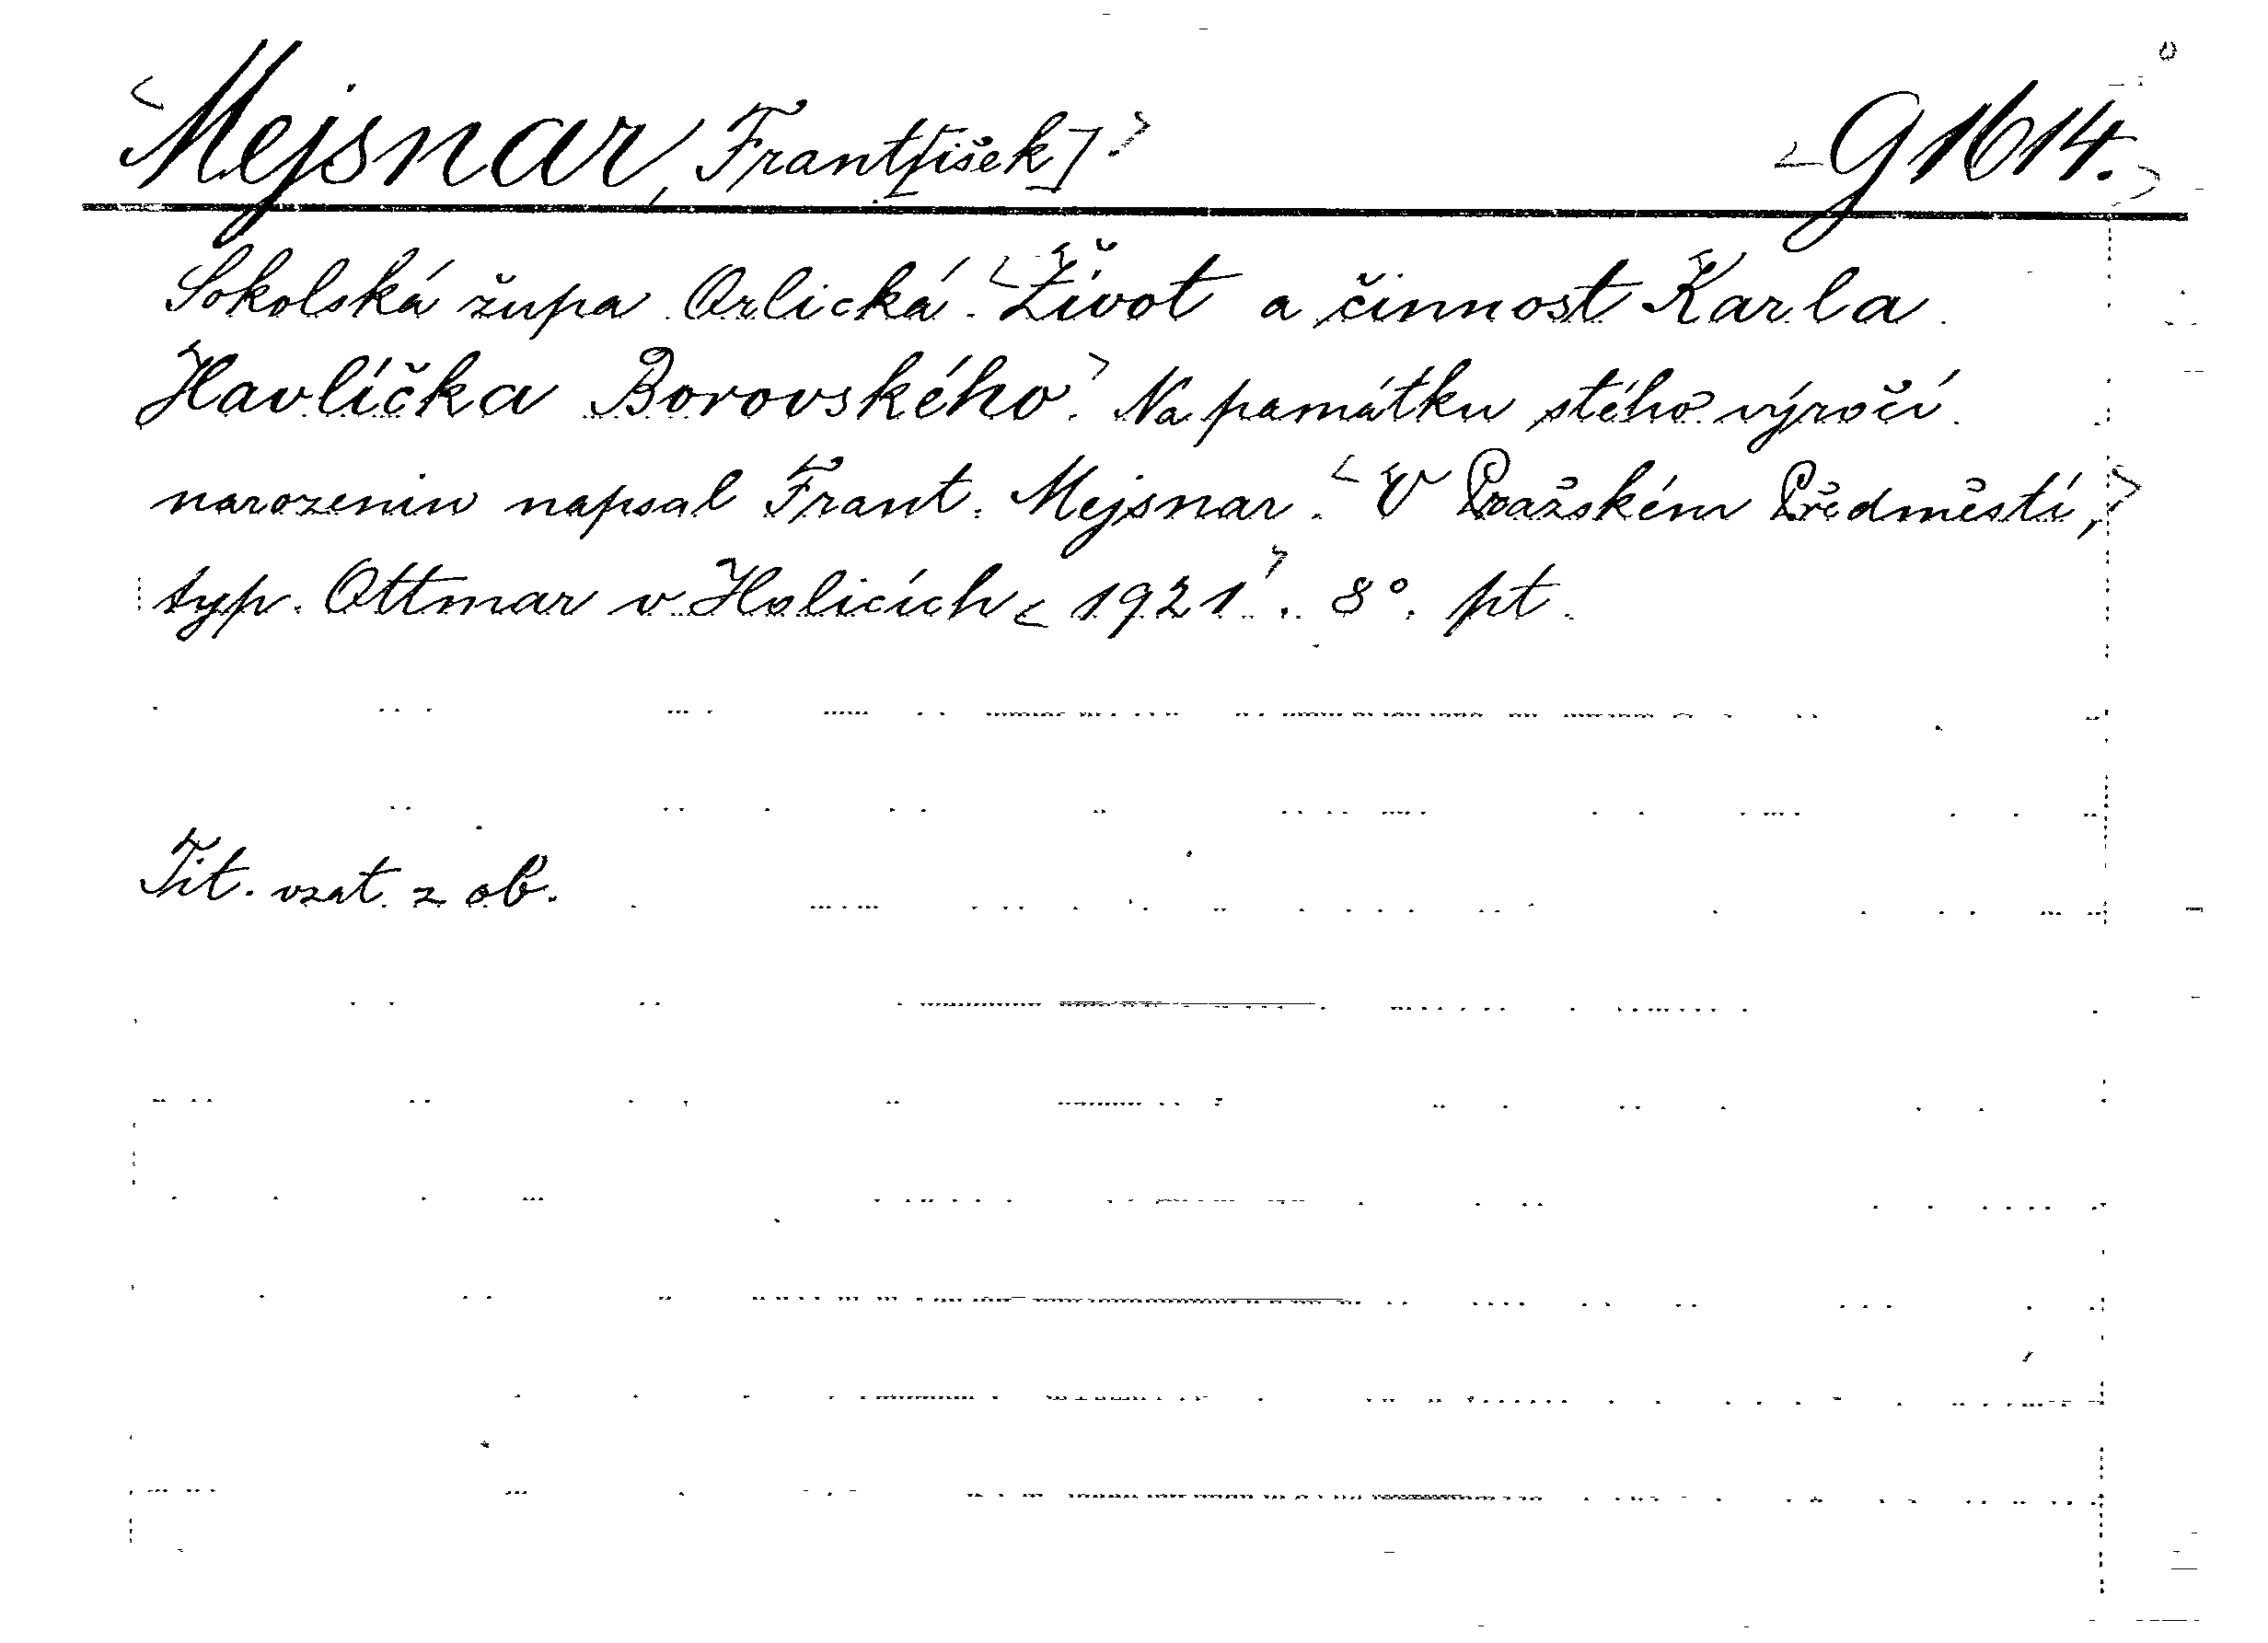 Mejsnar, Frant[išek] G 1614.
Sokolská župa Orlická. Život a činnost Karla
Havlíčka Borovského. Na památku stého výročí
narozenin napsal Frant. Mejsnar. V Pražském Předměstí,
typ. Ottmar v Holicích 1921. 8°. pt.
Tit. vzat z ob.